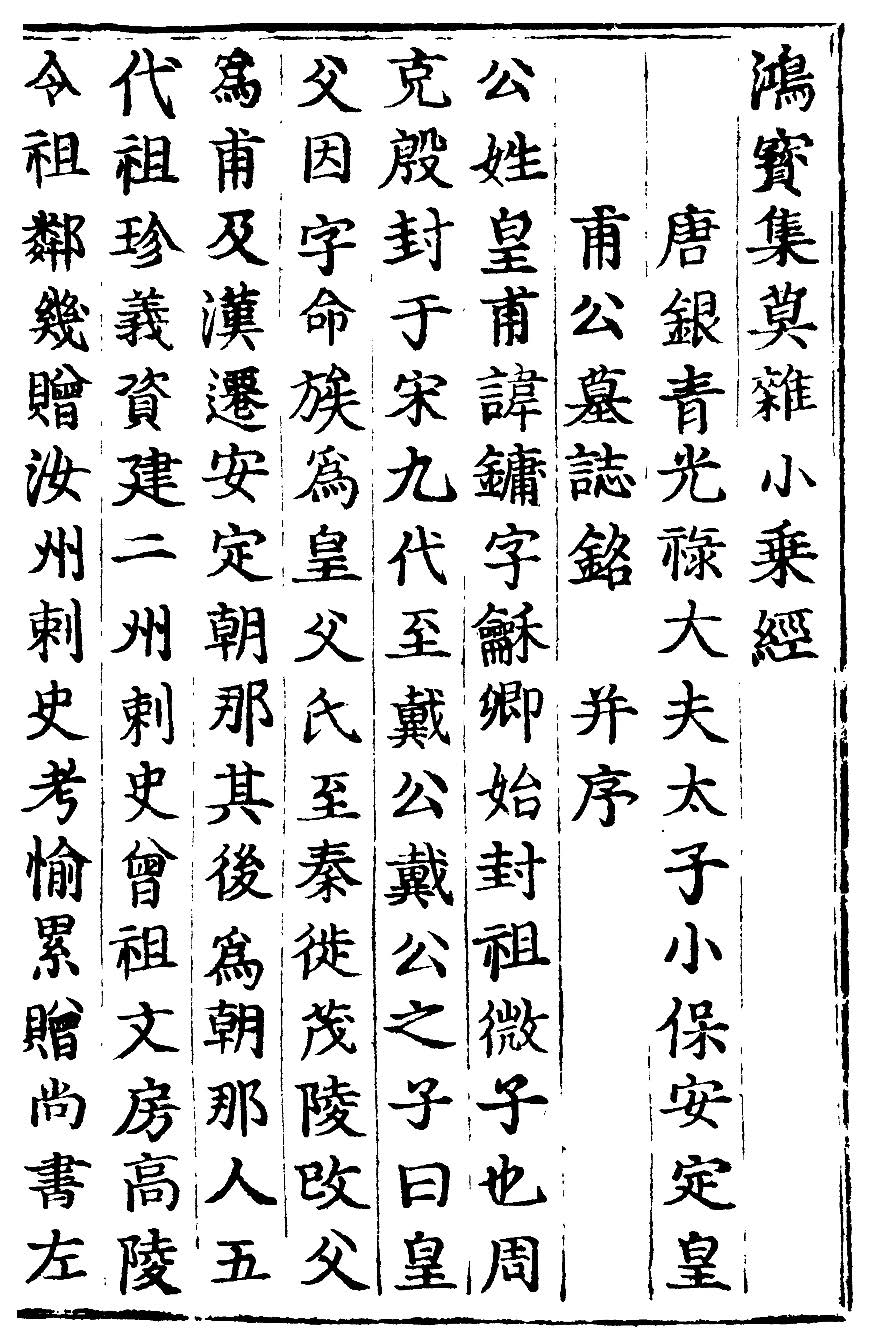 鴻寳集莫雜小乗經
唐銀青光祿大夫太子小保安定皇
甫公墓誌銘　并序
公姓皇甫諱鏞字龢卿始封祖微子也周
克殷封于宋九代至戴公戴公之子曰皇
父因字命族爲皇父氏至秦徙茂陵改父
爲甫及漢遷安定朝那其後爲朝那人五
代祖珍義資建二州刺史曾祖文房高陵
令祖鄰幾贈汝州刺史考愉累贈尚書左